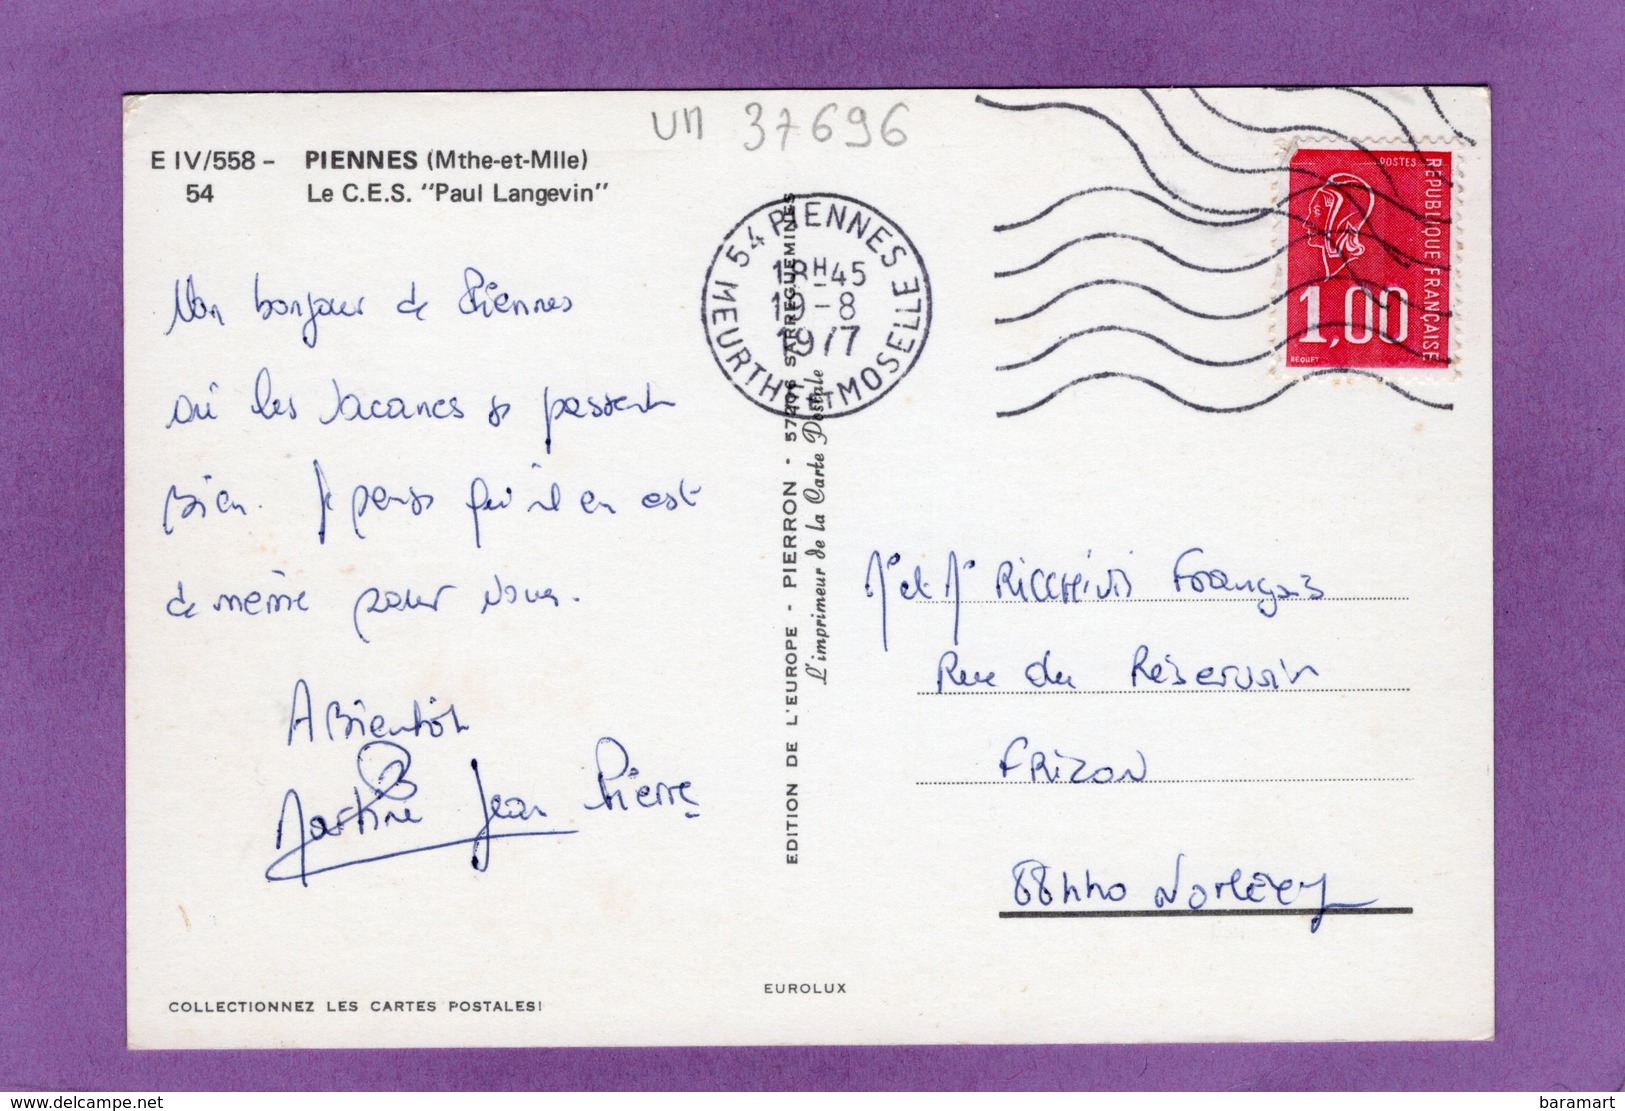 un 37696
E IV/558 - PIENNES (Mthe-et-Mlle)
54 Le C.E.S. "Paul Langevin"
Mon bonjour de Piennes
où les vacances se passent
bien. Je pense qu'il en est
de même pour vous.
A Bientôt
Martine Jean Pierre
COLLECTIONNEZ LES CARTES POSTALES!
EDITION DE L'EUROPE - PIERRON - SARREGUEMINES
L'imprimeur de la Carte Postale
EUROLUX
54 PIENNES
MEURTHE ET MOSELLE
18H45
19-8
1977
POSTES
REPUBLIQUE FRANÇAISE
1,00
BEQUET
François
Rue du Réservoir
FRIZON
88440 Nomexy
delcampe.net
baramart